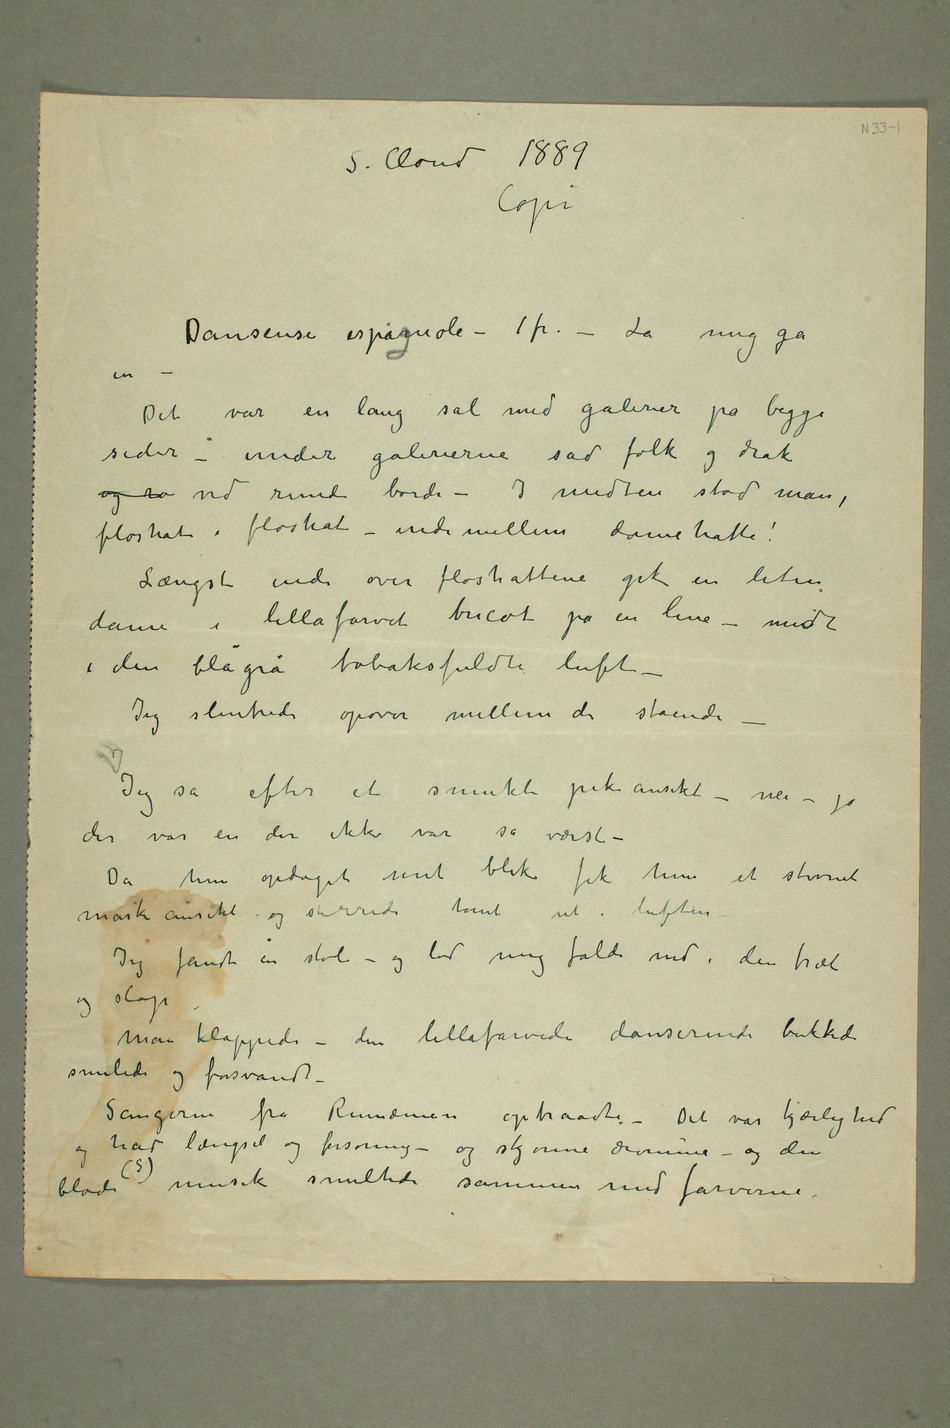 N 33-1
S. Cloud 1889
Copi
Danseuse espagnole – 1 fr. – La mig gå
in –
Det var en lang sal med galerier på begge
sider – under galerierne sad folk og drak
og ved runde borde – I midten stod man,
floshat i floshat – inde mellem damehatte!
Længst inde over floshattene gik en liten
dame i lillafarvet tricot på en line – midt
i den blågrå tobaksfuldte luft –
Jeg slentrede opover mellem de stående –
Jeg så efter et smukt pikeansikt – nei – jo
der var en der ikke var så værst –
Da hun opdaget mit blik fik hun et stivnet
maskeansikt og stirrede tomt ut i luften
Jeg fandt en stol – og lod mig falde ned i den træt
og slap
Man klappede – den lillafarvede danserinde bukkede
smilede og forsvandt –
Sangerne fra Rumænien optraadte. – Det var kjærlighed
og had længsel og forsoning – og skjønne drømme – og den
bløde (s) musik smeltede sammen med farverne.